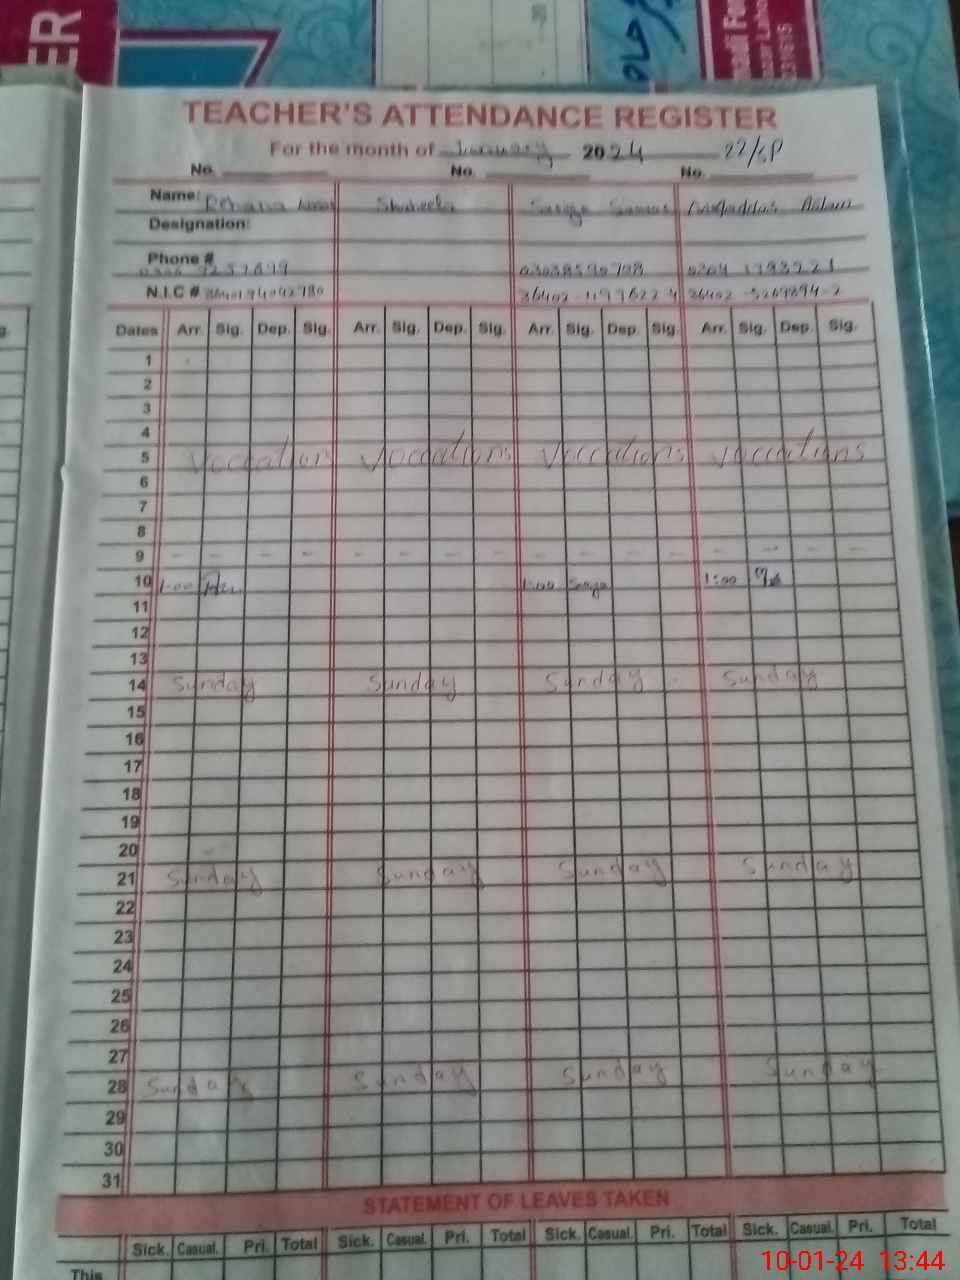 ER
TEACHER'S ATTENDANCE REGISTER
For the month of January 2024 22/SP
No. No. No.
Name: Rehana Shaheela Aslam
Designation:
Phone # 03038590708
N.I.C #
Dates Arr. Sig. Dep. Sig. Arr. Sig. Dep. Sig. Arr. Sig. Dep. Sig. Arr. Sig. Dep. Sig.
1
2
3
4
5 Voccations Voccations Voccations Voccations
6
7
8
9 - - - - - - - - - - - - - - - -
10 1:00 1:00 1:00
11
12
13
14 Sunday Sunday Sunday Sunday
15
16
17
18
19
20
21 Sunday Sunday Sunday Sunday
22
23
24
25
26
27
28 Sunday Sunday Sunday Sunday
29
30
31
STATEMENT OF LEAVES TAKEN
Sick. Casual. Pri. Total Sick. Casual. Pri. Total Sick. Casual. Pri. Total Sick. Casual. Pri. Total
This
10-01-24 13:44